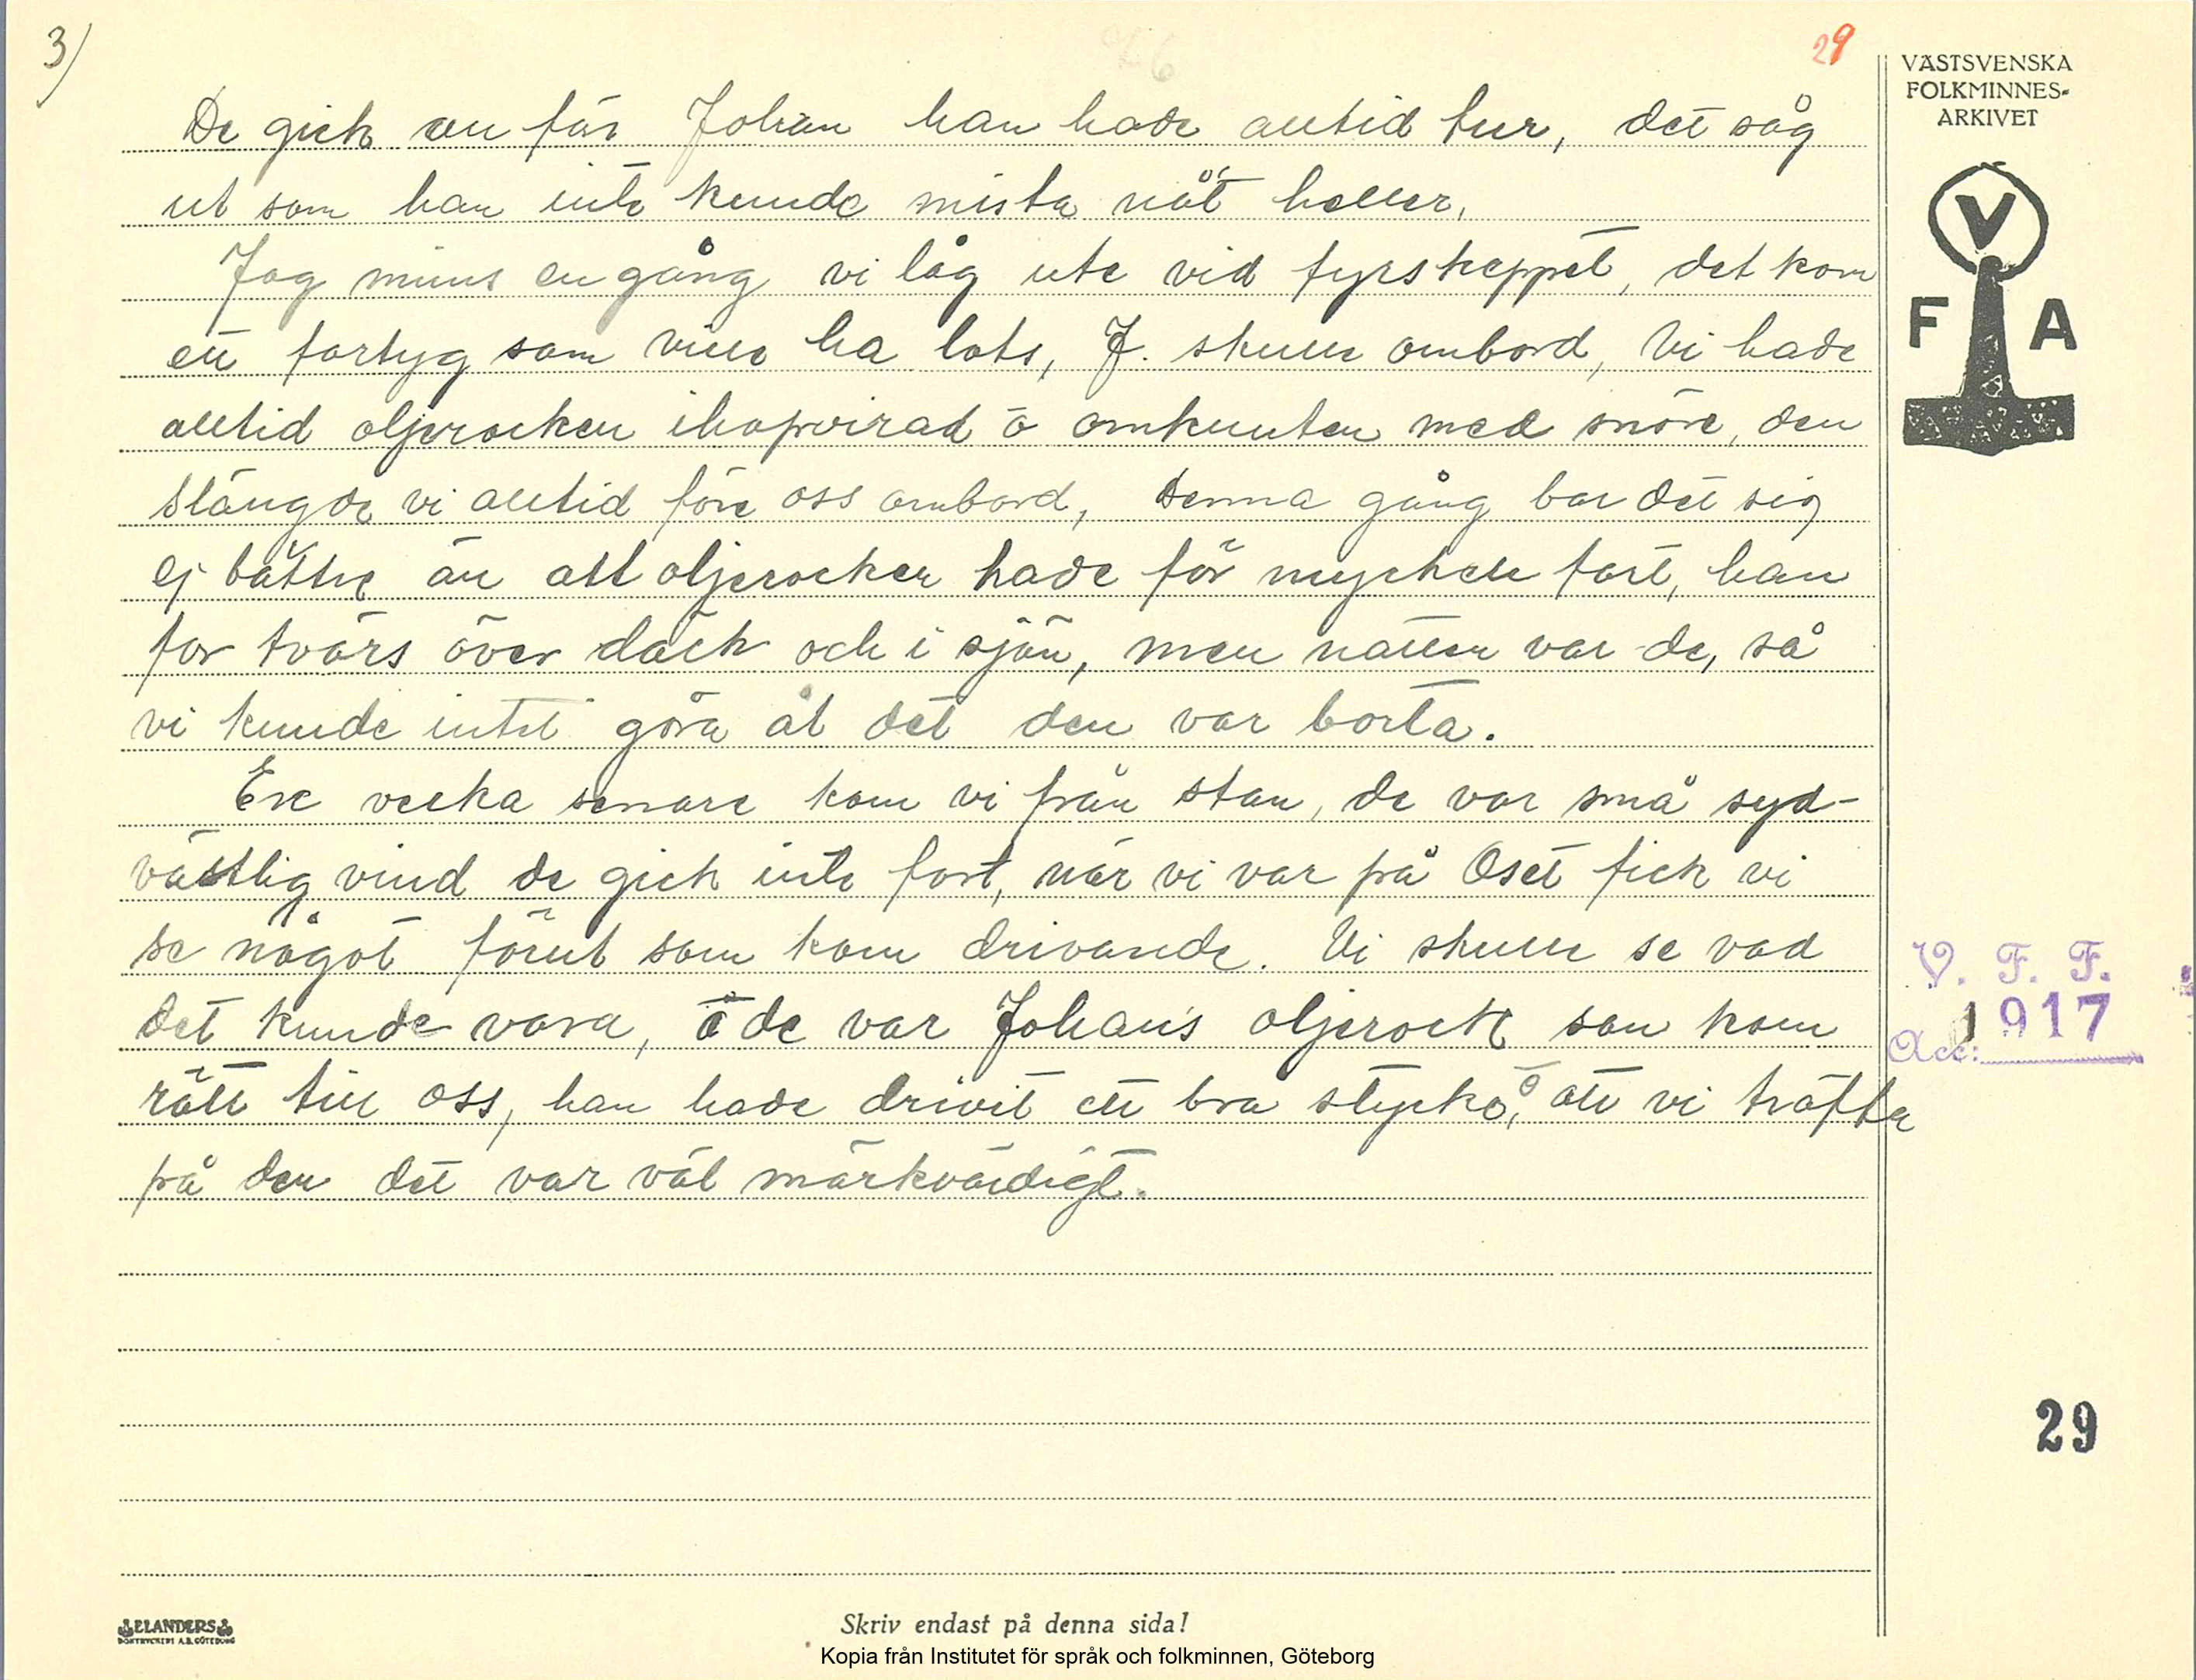 3/
29
VÄSTSVENSKA
FOLKMINNES-
ARKIVET
V
F A
De gick an för Johan han hade alltid tur, det såg
ut som han inte kunde mista nåt heller.
Jag minns en gång vi låg ute vid fyrskeppet, det kom
ett fartyg som ville ha lots, J. skulle ombord, Vi hade
alltid oljerocken ihopvirad o omknuten med snöre, den
slängde vi alltid före oss ombord, Denna gång bar det sig
ej bättre än att oljerocken hade för mycken fart, han
for tvärs över däck och i sjön, men natten var de, så
vi kunde intet göra åt det den var borta.
En vecka senare kom vi från stan, de var små syd-
västlig vind de gick inte fort, när vi var på Oset fick vi
se något förut som kom drivande. Vi skulle se vad
det kunde vara, å de var Johans oljerock som kom
rätt till oss, han hade drivit ett bra stycke, o att vi träffa
på den det var väl märkvärdigt.
V. F. F.
Acc: 1917
29
ELANDERS
BOKTRYCKERI A.B. GÖTEBORG
Skriv endast på denna sida!
Kopia från Institutet för språk och folkminnen, Göteborg